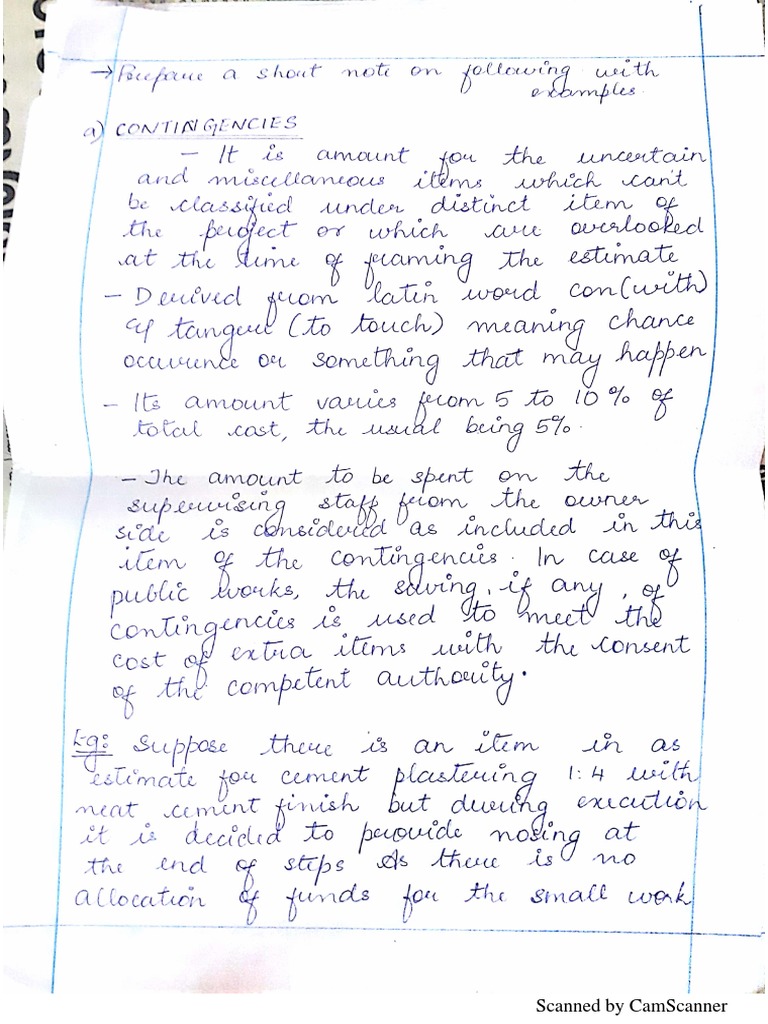 → Prepare a short note on following with
examples.
a) CONTINGENCIES
- It is amount for the uncertain
and miscellaneous items which can't
be classified under distinct item of
the project or which are overlooked
at the time of framing the estimate
- Derived from latin word con(with)
& tangere (to touch) meaning chance
occurence or something that may happen
- Its amount varies from 5 to 10% of
total cost, the usual being 5%.
- The amount to be spent on the
supervising staff from the owner
side is considered as included in this
item of the contingencies. In case of
public works, the saving, if any, of
contingencies is used to meet the
cost of extra items with the consent
of the competent authority.
Eg: Suppose there is an item in as
estimate for cement plastering 1:4 with
neat cement finish but during execution
it is decided to provide nosing at
the end of steps As there is no
allocation of funds for the small work
Scanned by CamScanner